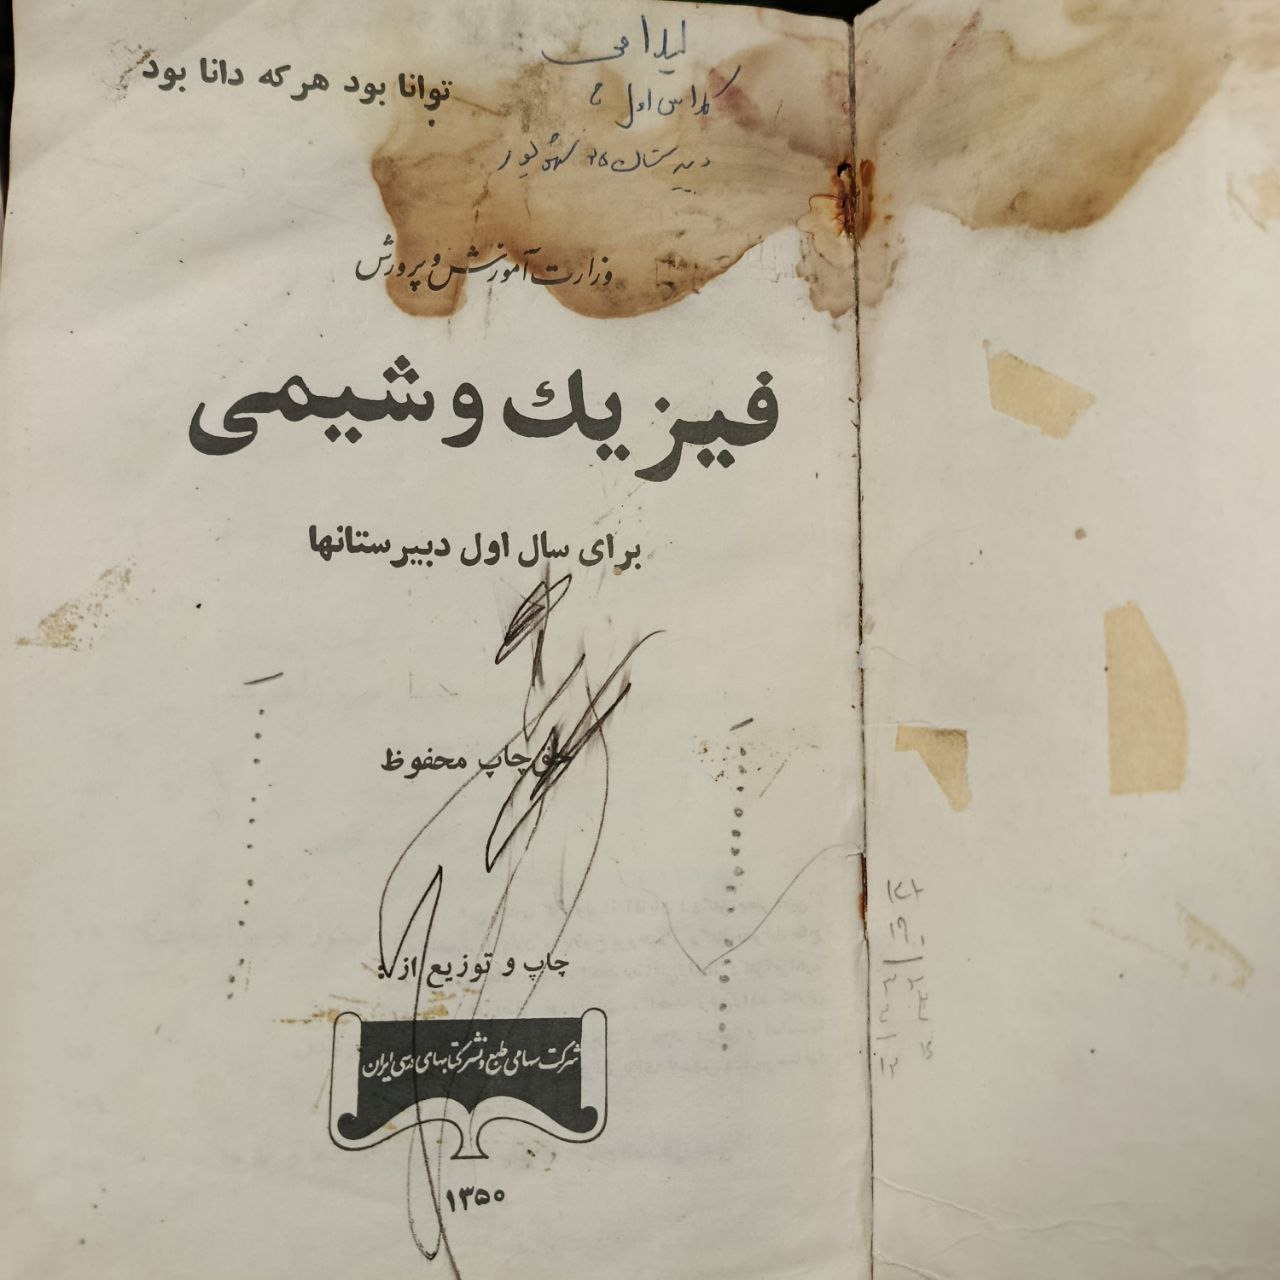 توانا بود هر که دانا بود
کلاس اول ج
دبیرستان
وزارت آموزش و پرورش
فیزیك و شیمی
برای سال اول دبیرستانها
حق چاپ محفوظ
چاپ و توزیع از:
شرکت سهامی طبع و نشر کتابهای درسی ایران
۱۳۵۰